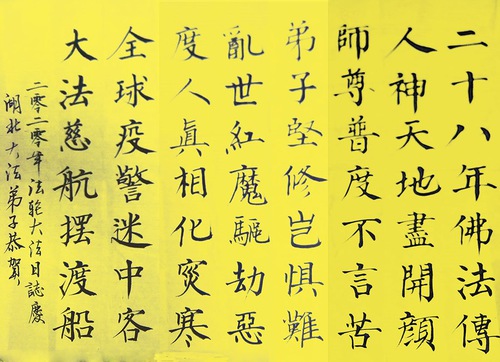 二十八年佛法傳
人神天地盡開顏
師尊普度不言苦
弟子堅修豈懼難
亂世紅魔驅劫惡
度人眞相化災寒
全球疫警迷中客
大法慈航擺渡船
二零二零年法輪大法日誌慶
湖北大法弟子恭賀